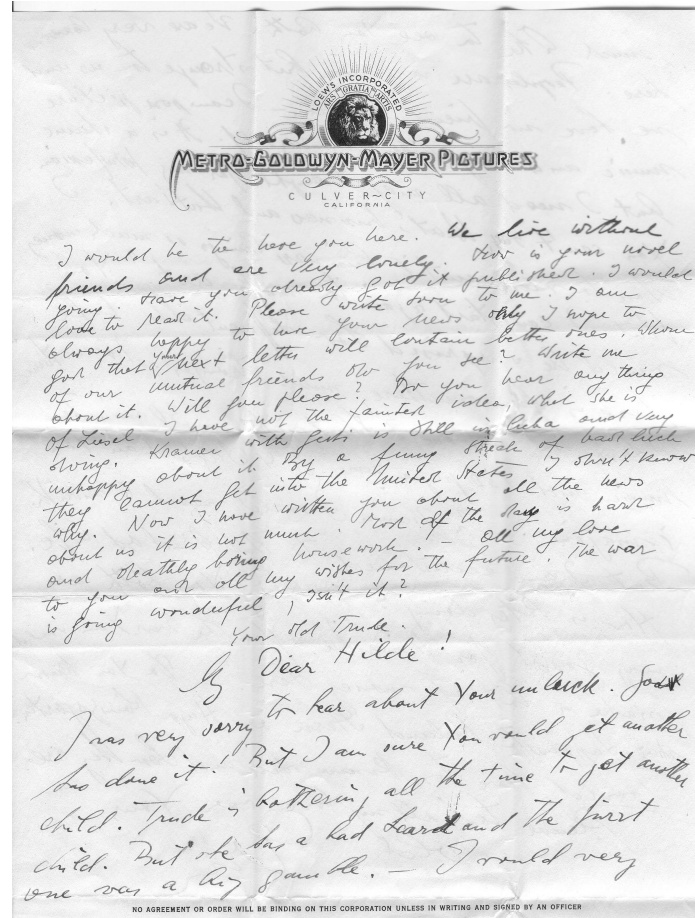 LOEW'S INCORPORATED
ARS GRATIA ARTIS
METRO-GOLDWYN-MAYER PICTURES
CULVER~CITY
CALIFORNIA
I would be the here you here. We live without
friends and are very lonely. How is your novel
going. Have you already got it published. I would
love to read it. Please write soon to me. I am
always happy to have your news only I hope to
god that your next letter will contain better ones. Whom
of our mutual friends do you see? Write me
about it. Will you please? Do you hear anything
of Liesel I have not the faintest idea, what she is
doing. Kramer with is still in Cuba and very
unhappy about it. By a funny streak of bad luck
they cannot get into the United States I don't know
why. Now I have written you about all the news
about us it is not much. Most of the day is hard
and deathly boring housework. — All my love
to you and all my wishes for the future. The war
is going wonderful, isn't it?
Your old Trude.
My Dear Hilde!
I was very sorry to hear about Your unluck. God
has done it! But I am sure You would get another
child. Trude is bothering all the time to get another
child. But she has a bad and the first
one was a big gamble. — I would very
NO AGREEMENT OR ORDER WILL BE BINDING ON THIS CORPORATION UNLESS IN WRITING AND SIGNED BY AN OFFICER